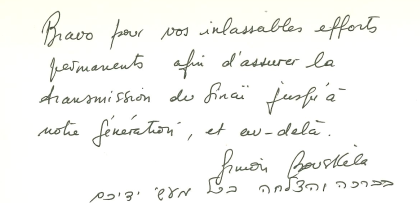 Bravo pour vos inlassables efforts
permanents afin d'assurer la
transmission du Sinaï jusqu'à
notre génération, et au-delà.
Simon Bouskéla
בברכה והצלחה בכל מעשי ידיכם